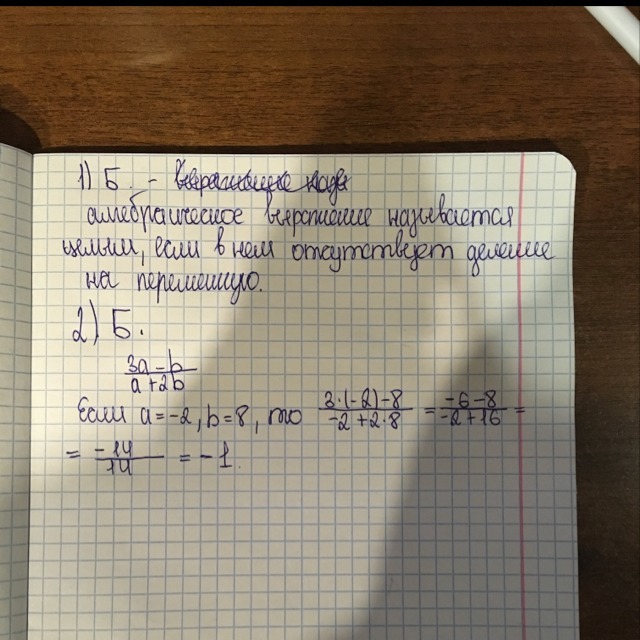 1) Б. -
алгебраическое выражение называется
целым, если в нем отсутствует деление
на переменную.
2) Б.
3a-b
a+2b
Если a=-2, b=8, то 3·(-2)-8 / -2+2·8 = -6-8 / -2+16 =
= -14 / 14 = -1.